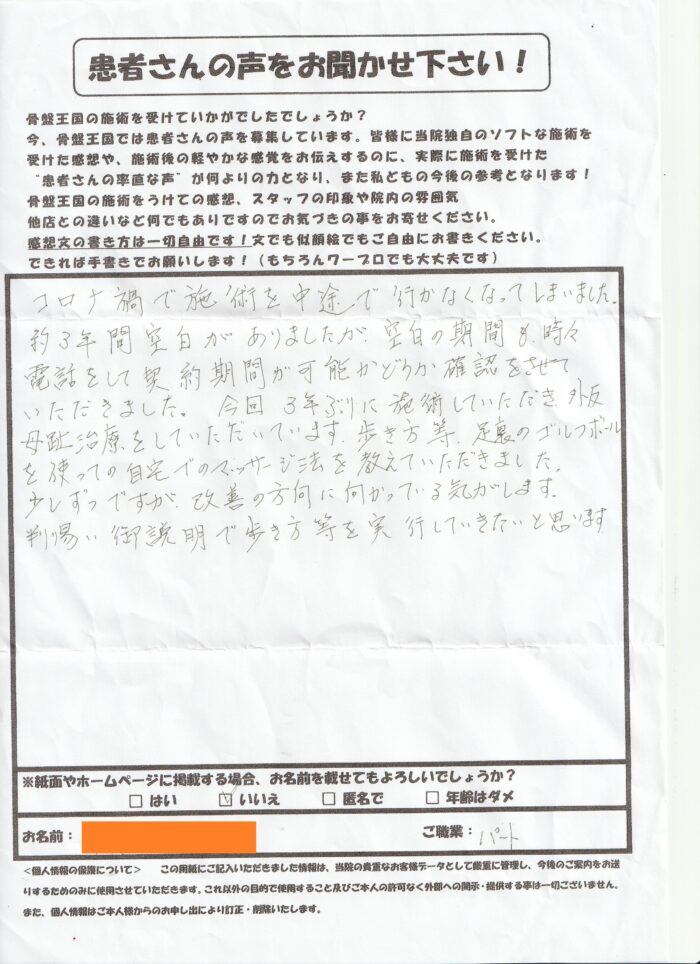 患者さんの声をお聞かせ下さい！
骨盤王国の施術を受けていかがでしたでしょうか？
今、骨盤王国では患者さんの声を募集しています。皆様に当院独自のソフトな施術を
受けた感想や、施術後の軽やかな感覚をお伝えするのに、実際に施術を受けた
"患者さんの率直な声"が何よりの力となり、また私どもの今後の参考となります！
骨盤王国の施術をうけての感想、スタッフの印象や院内の雰囲気
他店との違いなど何でもありですのでお気づきの事をお寄せください。
感想文の書き方は一切自由です！文でも似顔絵でもご自由にお書きください。
できれば手書きでお願いします！（もちろんワープロでも大丈夫です）
コロナ禍で施術を中途で行かなくなってしまいました。
約3年間空白がありましたが、空白の期間も、時々
電話をして契約期間が可能かどうか確認をさせて
いただきました。今回3年ぶりに施術していただき、外反
母趾治療をしていただいています。歩き方等、足裏のゴルフボール
を使っての自宅でのマッサージ法を教えていただきました。
少しずつですが、改善の方向に向かっている気がします。
判り易い御説明で歩き方等を実行していきたいと思います
※紙面やホームページに掲載する場合、お名前を載せてもよろしいでしょうか？
□ はい ☑ いいえ □ 匿名で □ 年齢はダメ
お名前： ご職業：パート
＜個人情報の保護について＞ この用紙にご記入いただきました情報は、当院の貴重なお客様データとして厳重に管理し、今後のご案内をお送
りするためのみに使用させていただきます。これ以外の目的で使用すること及びご本人の許可なく外部への開示・提供する事は一切ございません。
また、個人情報はご本人様からのお申し出により訂正・削除いたします。